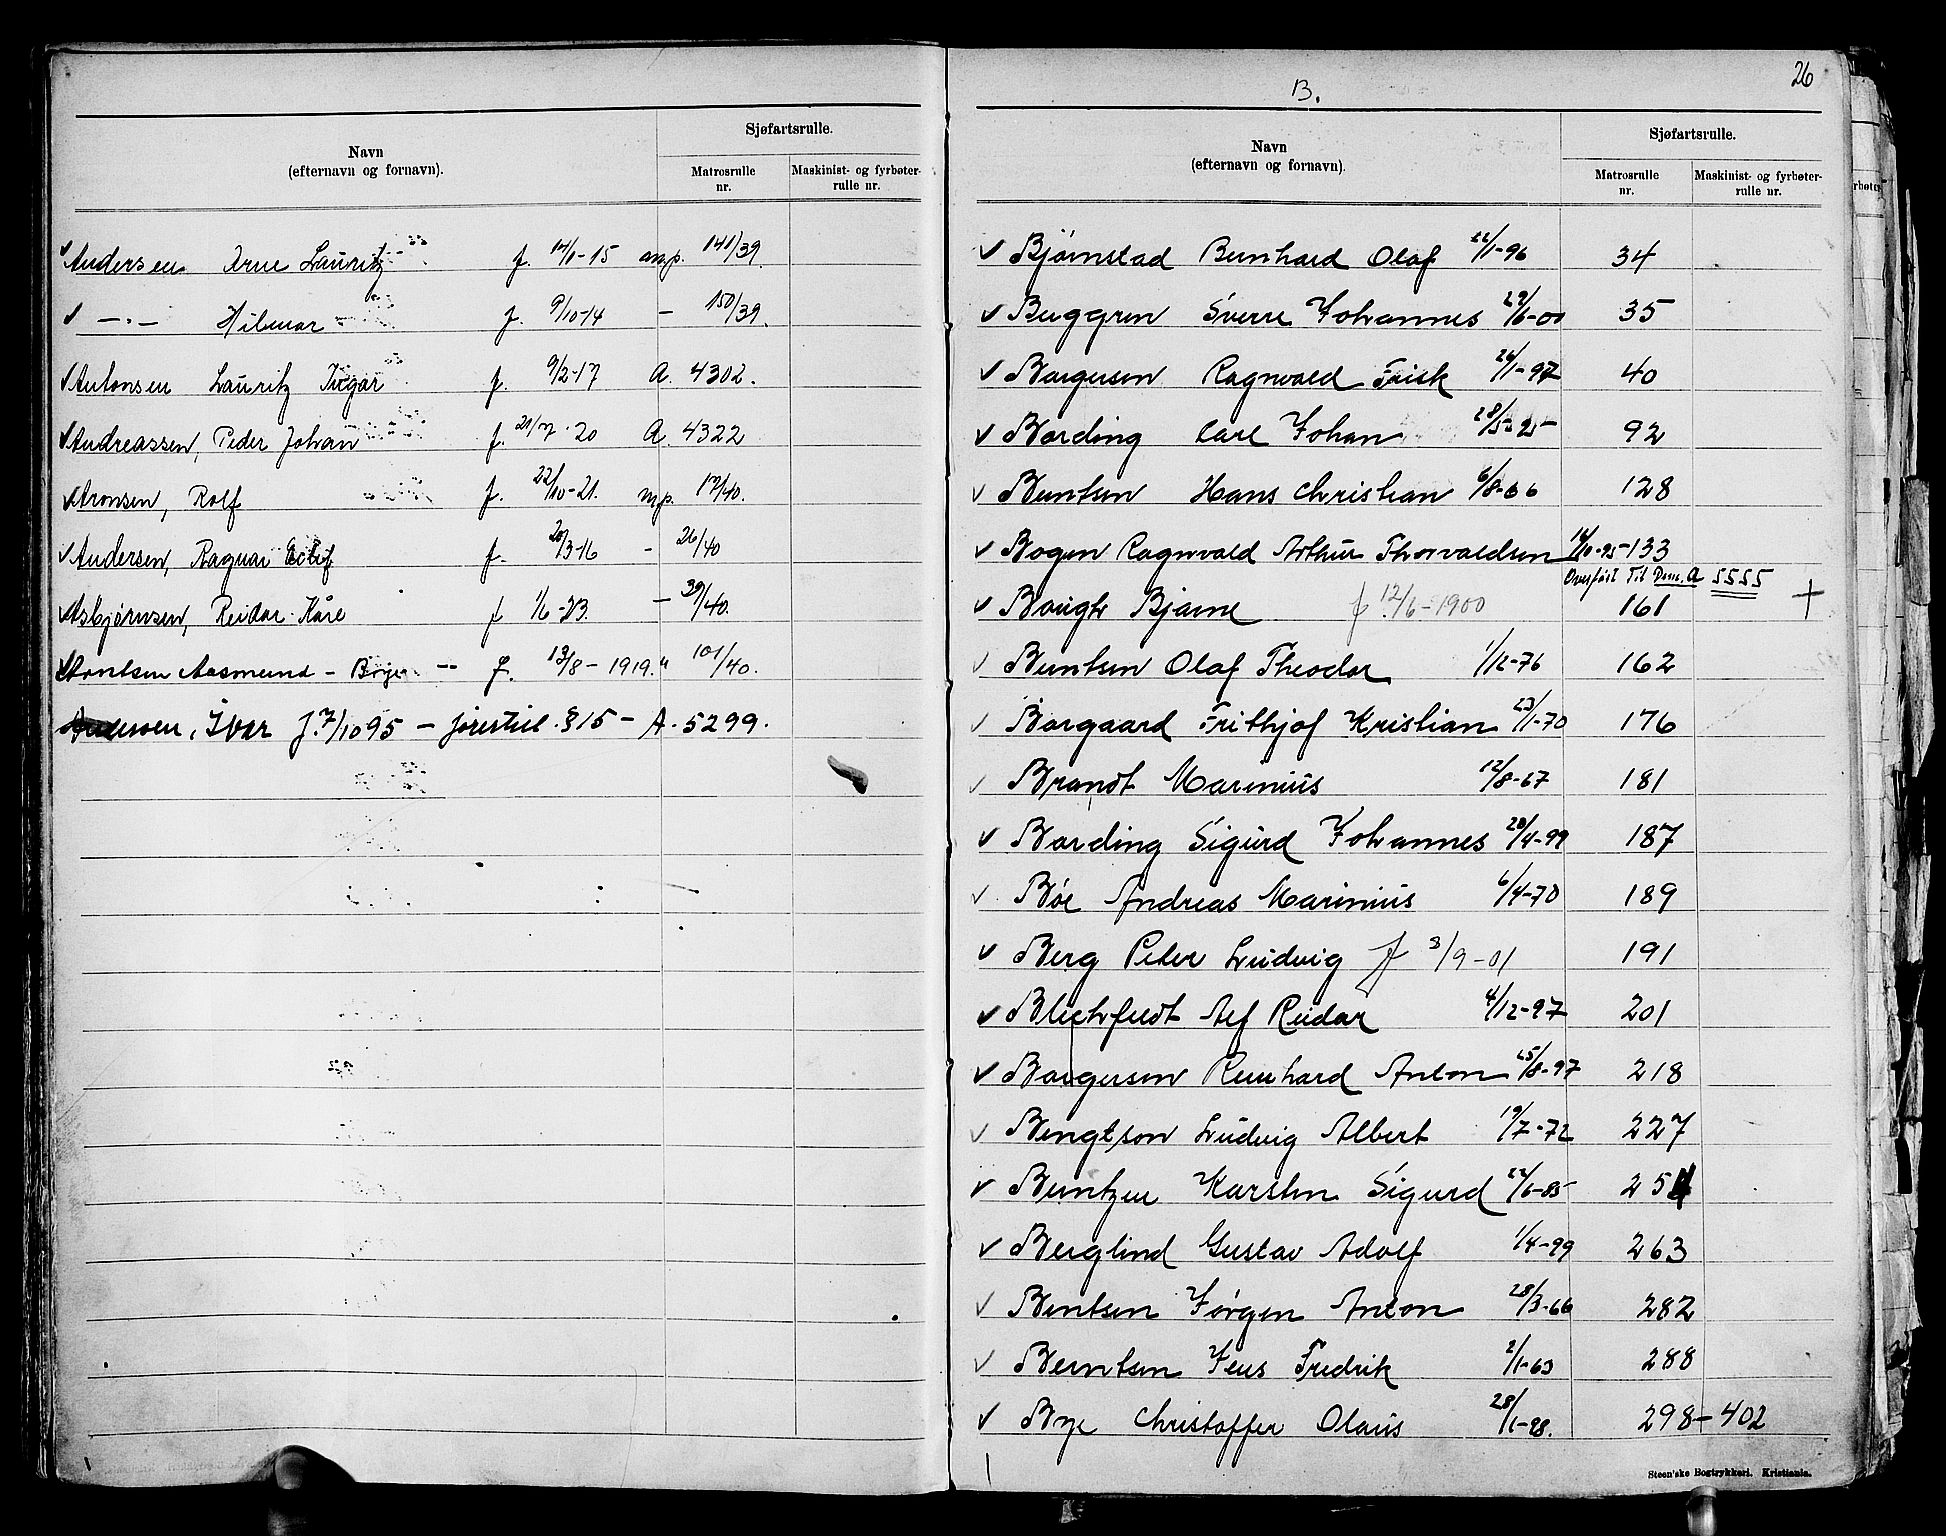 Navn
(efternavn og fornavn).
Sjøfartsrulle.
Matrosrulle
nr.
Maskinist- og fyrbøter-
rulle nr.
Andersen Arne Lauritz f. 14/1-15 mp. 141/39.
—"— Hilmar f. 9/10-14 – 150/39.
Antonsen Lauritz Ingar f. 9/2-17 A. 4302.
Andreassen, Peder Johan f. 21/7-20 A. 4322
Aronsen, Rolf f. 22/10-21. mp. 17/40.
Andersen, Ragnar f. 20/3-16 – 26/40
Asbjørnsen, Reidar Kåre f 1/6-23. – 39/40.
Arntsen Aasmund – Børge f. 13/8-1919. " 101/40.
Andersen, Ivar f. 7/10 95 – forestil. § 15 – A. 5299.
26
B.
Navn
(efternavn og fornavn).
Sjøfartsrulle.
Matrosrulle
nr.
Maskinist- og fyrbøter-
rulle nr.
Bjørnstad Bernhard Olaf 22/1-96 34
Berggren Sverre Johannes 29/6-00 35
Borgersen Ragnvald Frisk 26/1-97 40
Bording Carl Johan 28/5-95 92
Berntsen Hans Christian 6/8-66 128
Bogen Ragnvald Arthur Thorvaldsen 14/10-95-133
Overført til Dram. A 5555
Baugh Bjarne f 12/6-1900 161 +
Berntsen Olaf Theodor 1/12-76 162
Borgaard Frithjof Kristian 23/1-70 176
Brandt Marinius 12/8-67 181
Bording Sigurd Johannes 28/4-99 187
Bøe Andreas Marinius 6/4-70 189
Berg Peter Ludvig f 3/9-01 191
Blichfeldt Alf Reidar 4/12-97 201
Borgersen Reinhard Anton 25/8-97 218
Bengtson Ludvig Albert 19/7-72 227
Berntzen Karsten Sigurd 22/6-85 254
Berglind Gustav Adolf 1/4-99 263
Berntsen Jørgen Anton 28/3-66 282
Berntsen Jens Fredrik 2/1-63 288
Bye Christoffer Olaus 28/1-98. 298-402
Steen'ske Bogtrykkeri. Kristiania.